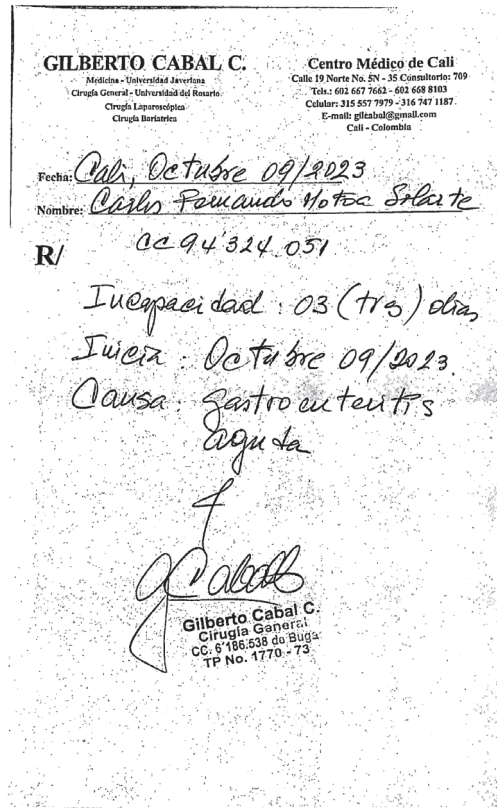 GILBERTO CABAL C.
Medicina - Universidad Javeriana
Cirugía General - Universidad del Rosario
Cirugía Laparoscópica
Cirugía Bariatrica
Centro Médico de Cali
Calle 19 Norte No. 5N - 35 Consultorio: 709
Tels.: 602 667 7662 - 602 668 8103
Celular: 315 557 7979 - 316 747 1187
E-mail: gilcabal@gmail.com
Cali - Colombia
Fecha: Cali, Octubre 09/2023
Nombre: Carlos Fernando Motoa Solarte
R/
CC 94'324.051
Incapacidad : 03 (tres) dias
Inicia : Octubre 09/2023.
Causa : Gastroenteritis
aguda
GCabal
Gilberto Cabal C.
Cirugía General
CC. 6'186.538 de Buga
TP No. 1770 - 73